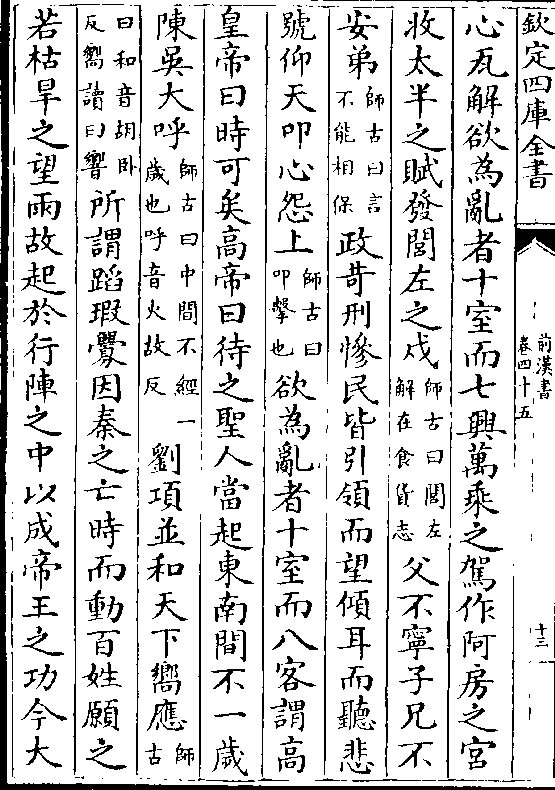 欽定四庫全書
前漢書
卷四十五
十三
心瓦解欲為亂者十室而七興萬乘之駕作阿房之宮
收太半之賦發閭左之戍師古曰閭左解在食貨志父不寧子兄不
安弟師古曰言不能相保政苛刑慘民皆引領而望傾耳而聽悲
號仰天叩心怨上師古曰叩擊也欲為亂者十室而八客謂高
皇帝曰時可矣高帝曰待之聖人當起東南間不一歲
陳吳大呼師古曰中間不經一歲也呼音火故反劉項並和天下嚮應師古
曰和音胡卧反嚮讀曰響所謂蹈瑕釁因秦之亡時而動百姓願之
若枯旱之望雨故起於行陣之中以成帝王之功今大